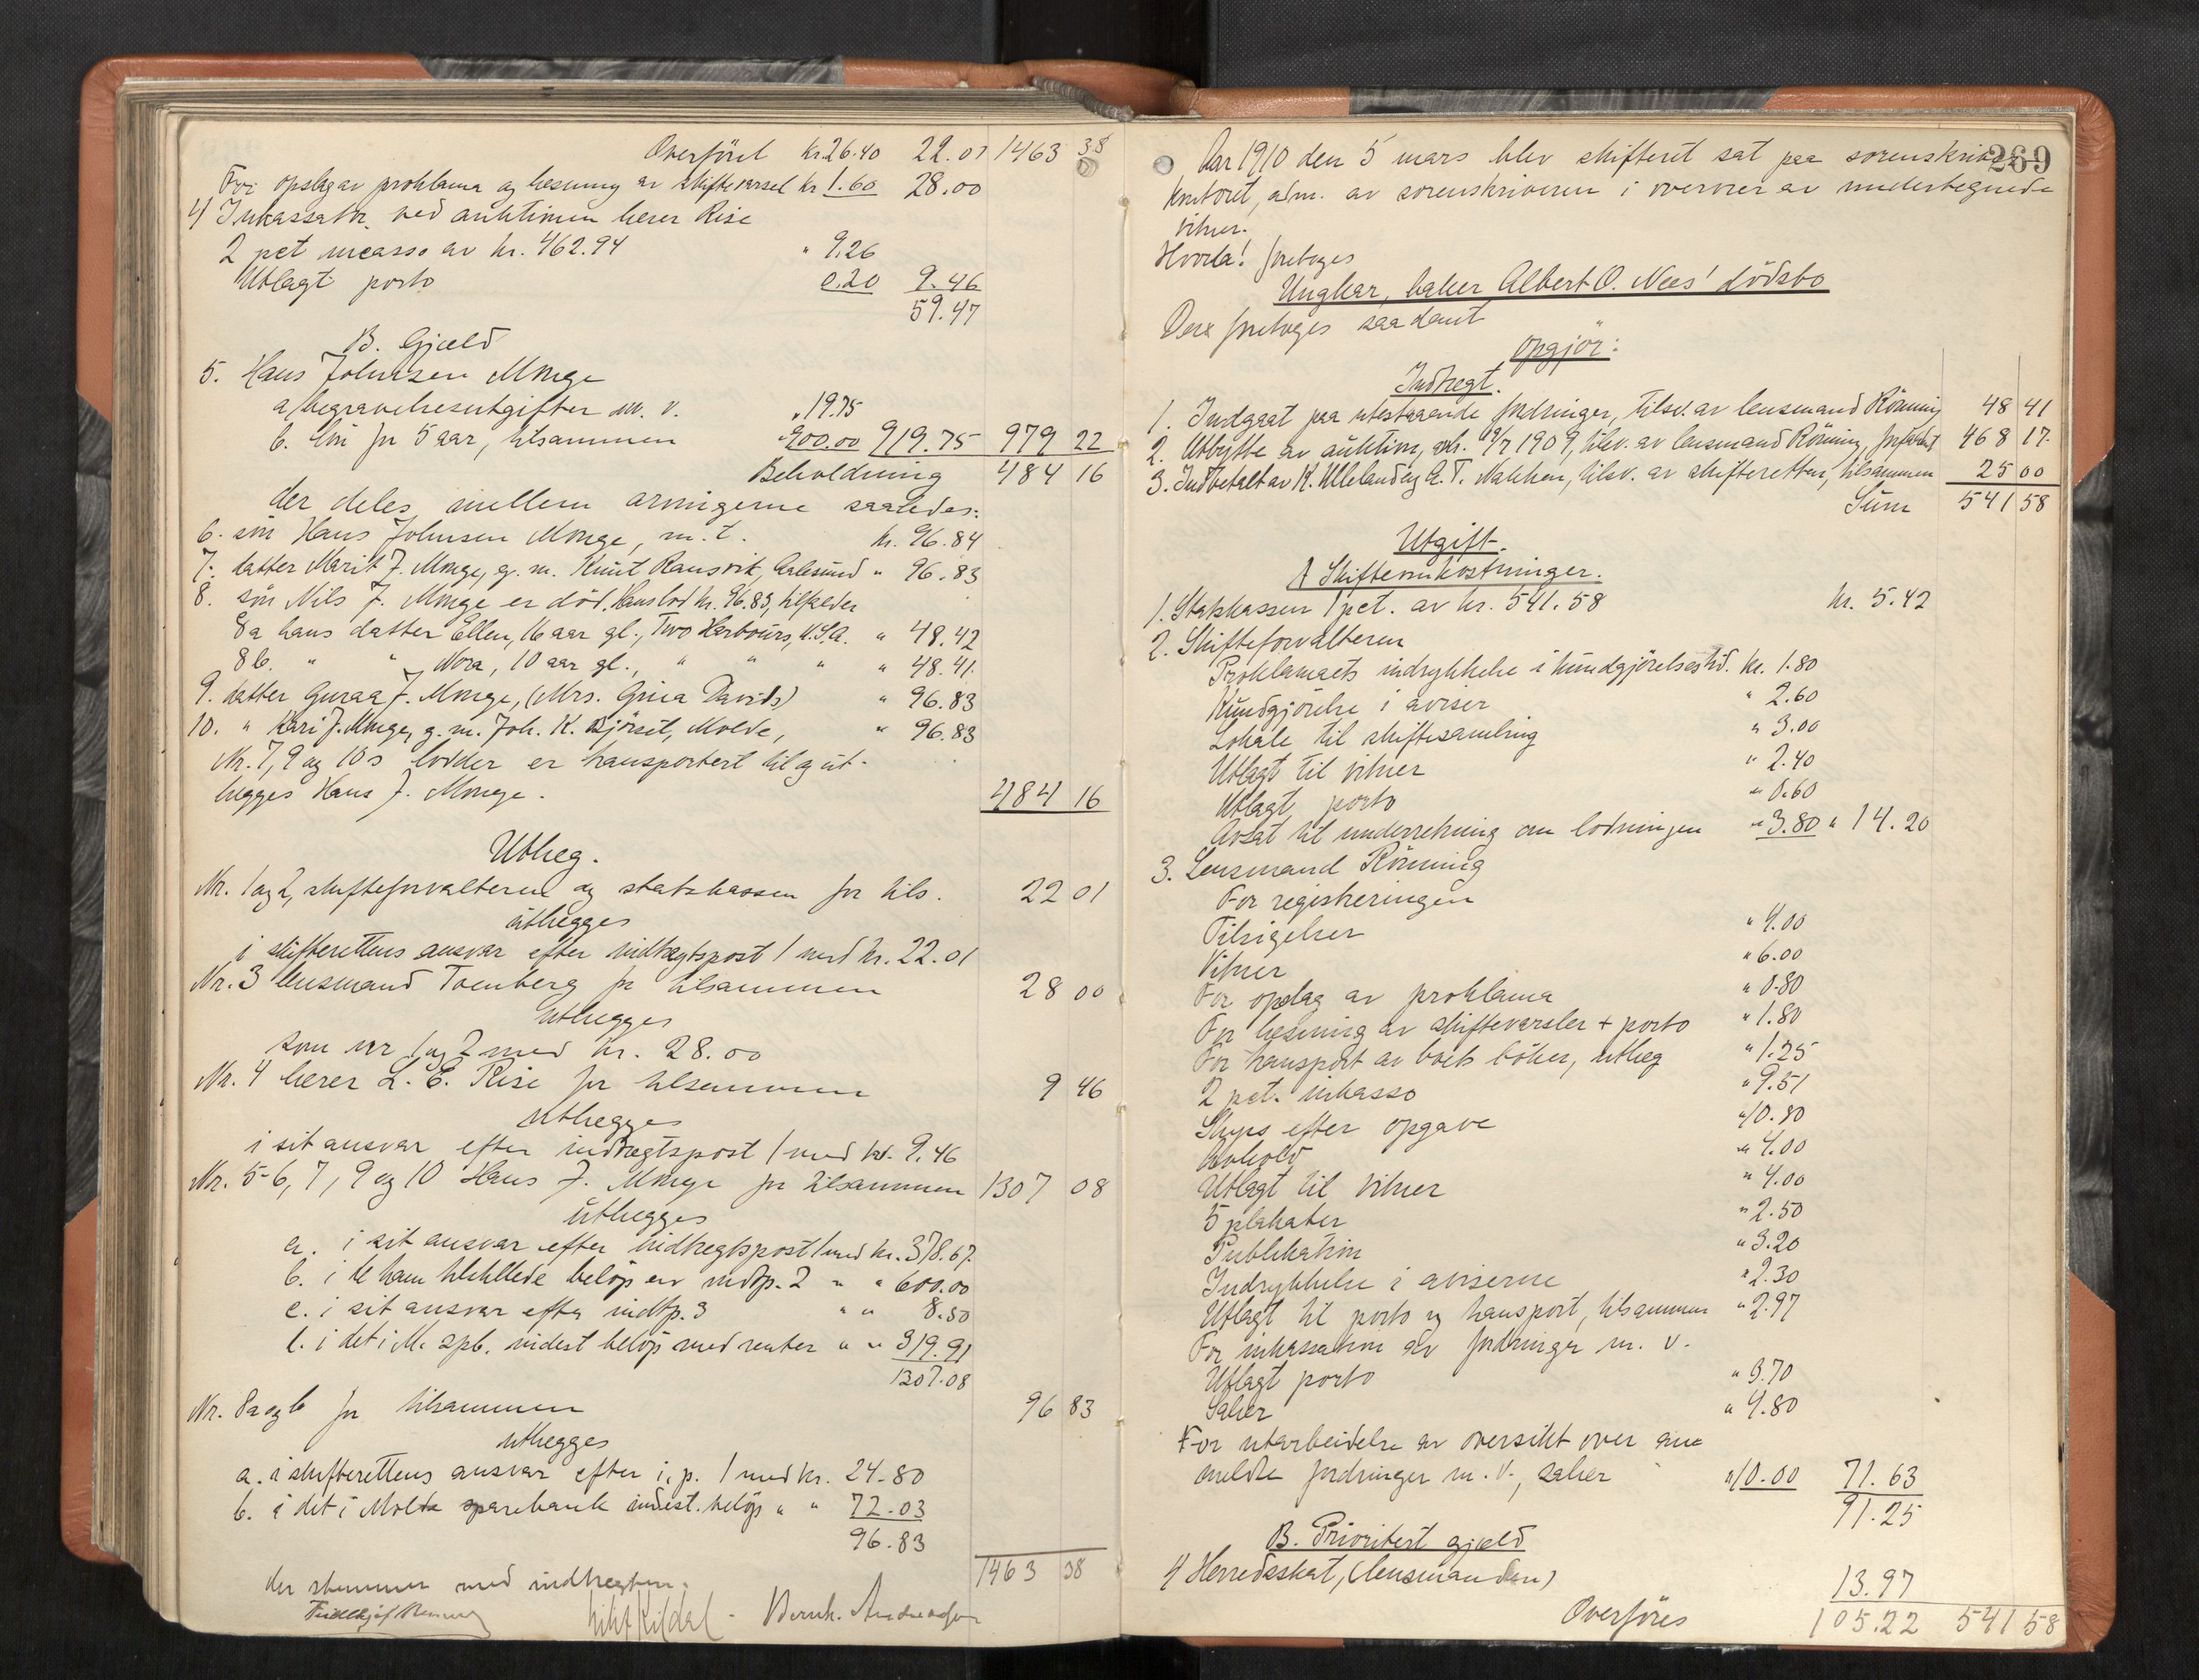 Overført kr. 26.40 22.01 1463 38
For opslag av proklama og læsning av skiftevarsel kr 1.60 28.00
4 Inkassator ved auktionen lærer Rise
2 pct incasso av kr. 462.94 " 9.26
Utlagt porto 0.20 9.46
59.47
B. Gjæld
5. Hans Johnsen Monge
a/ begravelsesutgifter m. v. " 19.75
b. løn for 5 aar, tilsammen " 900.00 919.75 979 22
Beholdning 484 16
der deles mellem arvingerne saaledes:
6. søn Hans Johnsen Monge, m. t. kr. 96.84
7. datter Marit J. Monge, g. m. Knut Ransvik, Aalesund " 96.83
8. søn Nils J. Monge er død. Hans lod kr. 96.83, tilfalder
8a hans datter Ellen, 16 aar gl., Two Harbours, U.S.A. " 48.42
8b. " " Nora, 10 aar gl., " " " " 48.41
9. datter Guraa J. Monge, (Mrs. Guia Davids) " 96.83
10. " Kari J. Monge, g. m. Joh. K. Bjørset, Molde, " 96.83
Nr. 7, 9 og 10s lodder er transportert til og ut-
lægges Hans J. Monge. 484 16
Utlæg.
Nr. 1 og 2, skifteforvalteren og statskassen for tils. 22 01
utlægges
i skifterettens ansvar efter indtægtspost 1 med kr. 22.01
Nr. 3 lensmand Toenberg for tilsammen 28 00
utlægges
som nr 1 og 2 med kr. 28.00
Nr. 4 lærer L. E. Rise for tilsammen 9 46
utlægges
i sit ansvar efter indtægtspost 1 med kr. 9.46
Nr. 5-6, 7, 9 og 10 Hans J. Monge for tilsammen 1307 08
utlægges
a. i sit ansvar efter indtægtspost 1 med kr. 378.67
b. i de ham tilstillede beløp av indtp. 2 " " 600.00
c. i sit ansvar efter indtp. 3 " " 8.50
d. i det i M. spb. indest beløp med renter " " 319.91
1307.08
Nr. 8a og b for tilsammen 96 83
utlægges
a. i skifterettens ansvar efter i. p. 1 med kr. 24.80
b. i det i Molde sparebank indest. beløp " " 72.03
96.83
1463 38
der stemmer med indtægten.
Bernh. Andreassen
269
Aar 1910 den 5 mars blev skifteret sat paa sorenskriver-
kontoret, adm. av sorenskriveren i overvær av undertegnede
vitner.
Hvorda! foretoges
Ungkar, baker Albert O. Næs' dødsbo
Der foretoges saadant
Opgjør:
Indtægt.
1. Indgaat paa utestaaende fordringer, tilsv. av lensmand Rønning 48 41
2. Utbytte av auktion, avh. 19/7 1909, tilsv. av lensmand Rønning, forfaldt 468 17
3. Indbetalt av K. Ulleland og A. T. Nakken, tilsv. av skifteretten, tilsammen 25 00
Sum 541 58
Utgift.
A Skifteomkostninger.
1. Statskassen 1 pct. av kr. 541.58 kr. 5.42
2. Skifteforvalteren
Proklamaets indrykkelse i kundgjørelsestid. kr. 1.80
Kundgjørelse i aviser " 2.60
Lokale til skiftesamling " 3.00
Utlagt til vitner " 2.40
Utlagt porto " 0.60
Avsat til underretning om lodningen " 3.80 " 14.20
3. Lensmand Rønning
For registreringen " 4.00
Tilsigelser " 6.00
Vitner " 0.80
For opslag av proklama " 1.80
For læsning av skiftevarsler + porto " 1.25
For transport av boets bøker, utlæg " 9.51
2 pct. inkasso " 10.80
Skyss efter opgave " 4.00
Avhold " 4.00
Utlagt til vitner " 2.50
5 plakater " 3.20
Publikation " 2.30
Indrykkelse i aviserne " 2.97
Utlagt til porto og transport, tilsammen
For inkassation av fordringer m. v. " 3.70
Utlagt porto " 4.80
Salær
For utarbeidelse av oversikt over an-
meldte fordringer m. v., salær " 10.00 71.63
91.25
B. Prioritert gjæld
4 Herredsskat, (lensmanden) 13.97
Overføres 105.22 541 58